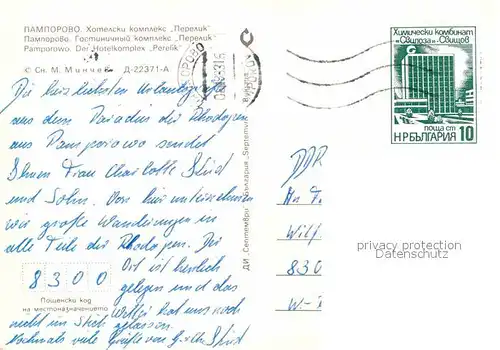 ПАМПОРОВО. Хотелски комплекс „Перелик"
Пампорово. Гостиничный комплекс „Перелик"
Pamporowo. Der Hotelkomplex „Perelik"
© Сн. М. Минчев Д-22371-А
Химически комбинат
"Свилоза" - Свищов
поща ст
НР БЪЛГАРИЯ 10
Die herzlichsten Urlaubsgrüße
aus dem Paradies der Rhodopen
aus Pamporowo sendet
Ihnen Frau Charlotte
und Sohn. Von hier unternehmen
wir große Wanderungen in
alle Teile der Rhodopen. Der
Ort ist herrlich
gelegen und das
hat uns noch
nicht im Stich gelassen.
Nochmals viele Grüße von
8300
Пощенски код
на местоназначението
ДИ „Септември" България
DDR
An
Wilf
830
privacy protection
Datenschutz